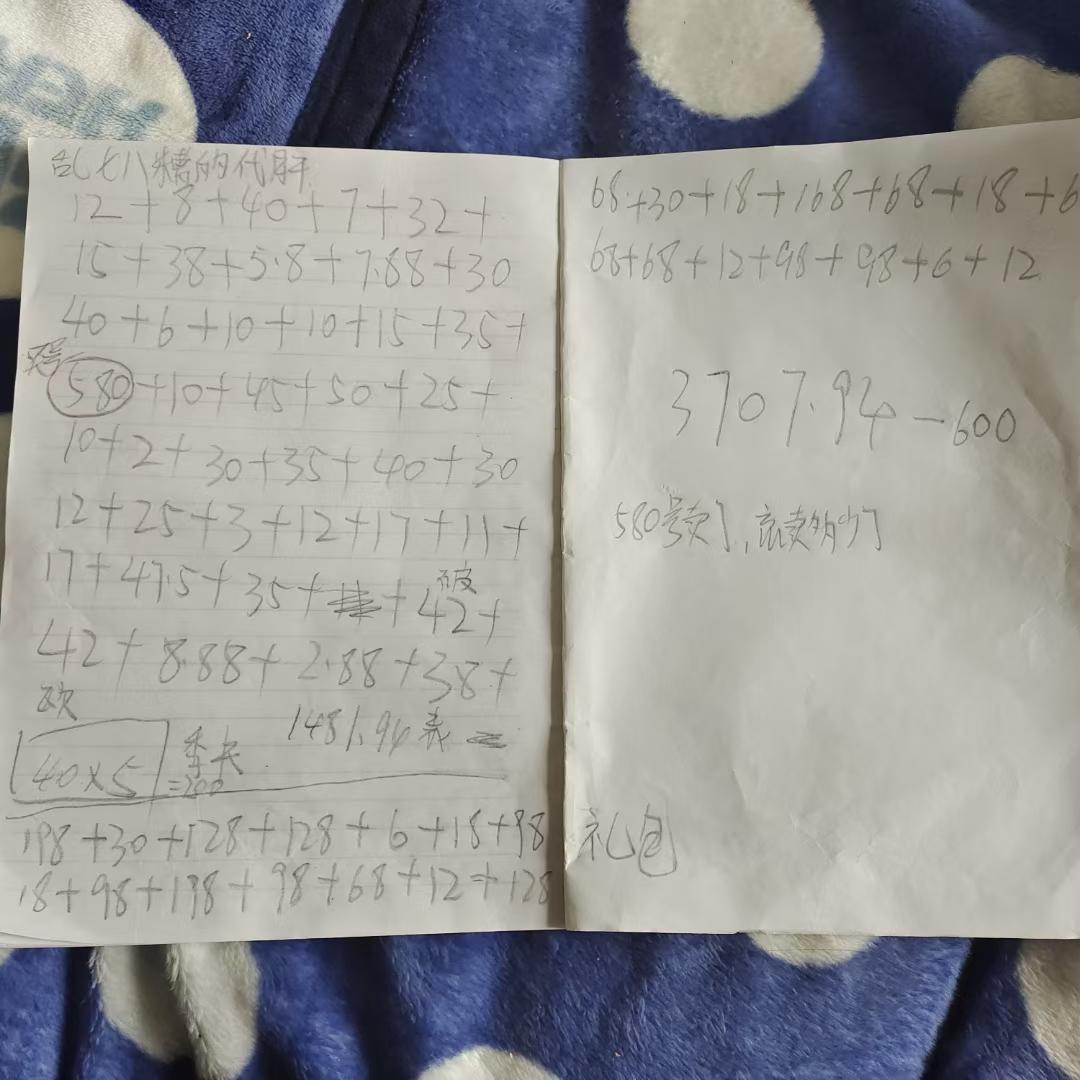 乱七八糟的代肝
12+8+40+7+32+
15+38+5.8+7.88+30
40+6+10+10+15+35+
买号
580+10+45+50+25+
10+2+30+35+40+30
12+25+3+12+17+11+
17+47.5+35+ + 42+
42+8.88+2.88+38+
1481.94
40×5 季卡
=200
198+30+128+128+6+18+98
18+98+198+98+68+12+128
礼包
68+30+18+168+68+18+6
68+68+12+98+98+6+12
3707.94-600
580号卖了,